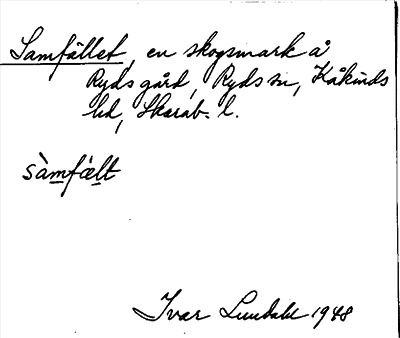 Samfället, en skogsmark å
Rydsgård, Ryds sn, Kåkinds
hd, Skarab. l.
sàmfælt
Ivar Lundahl 1948